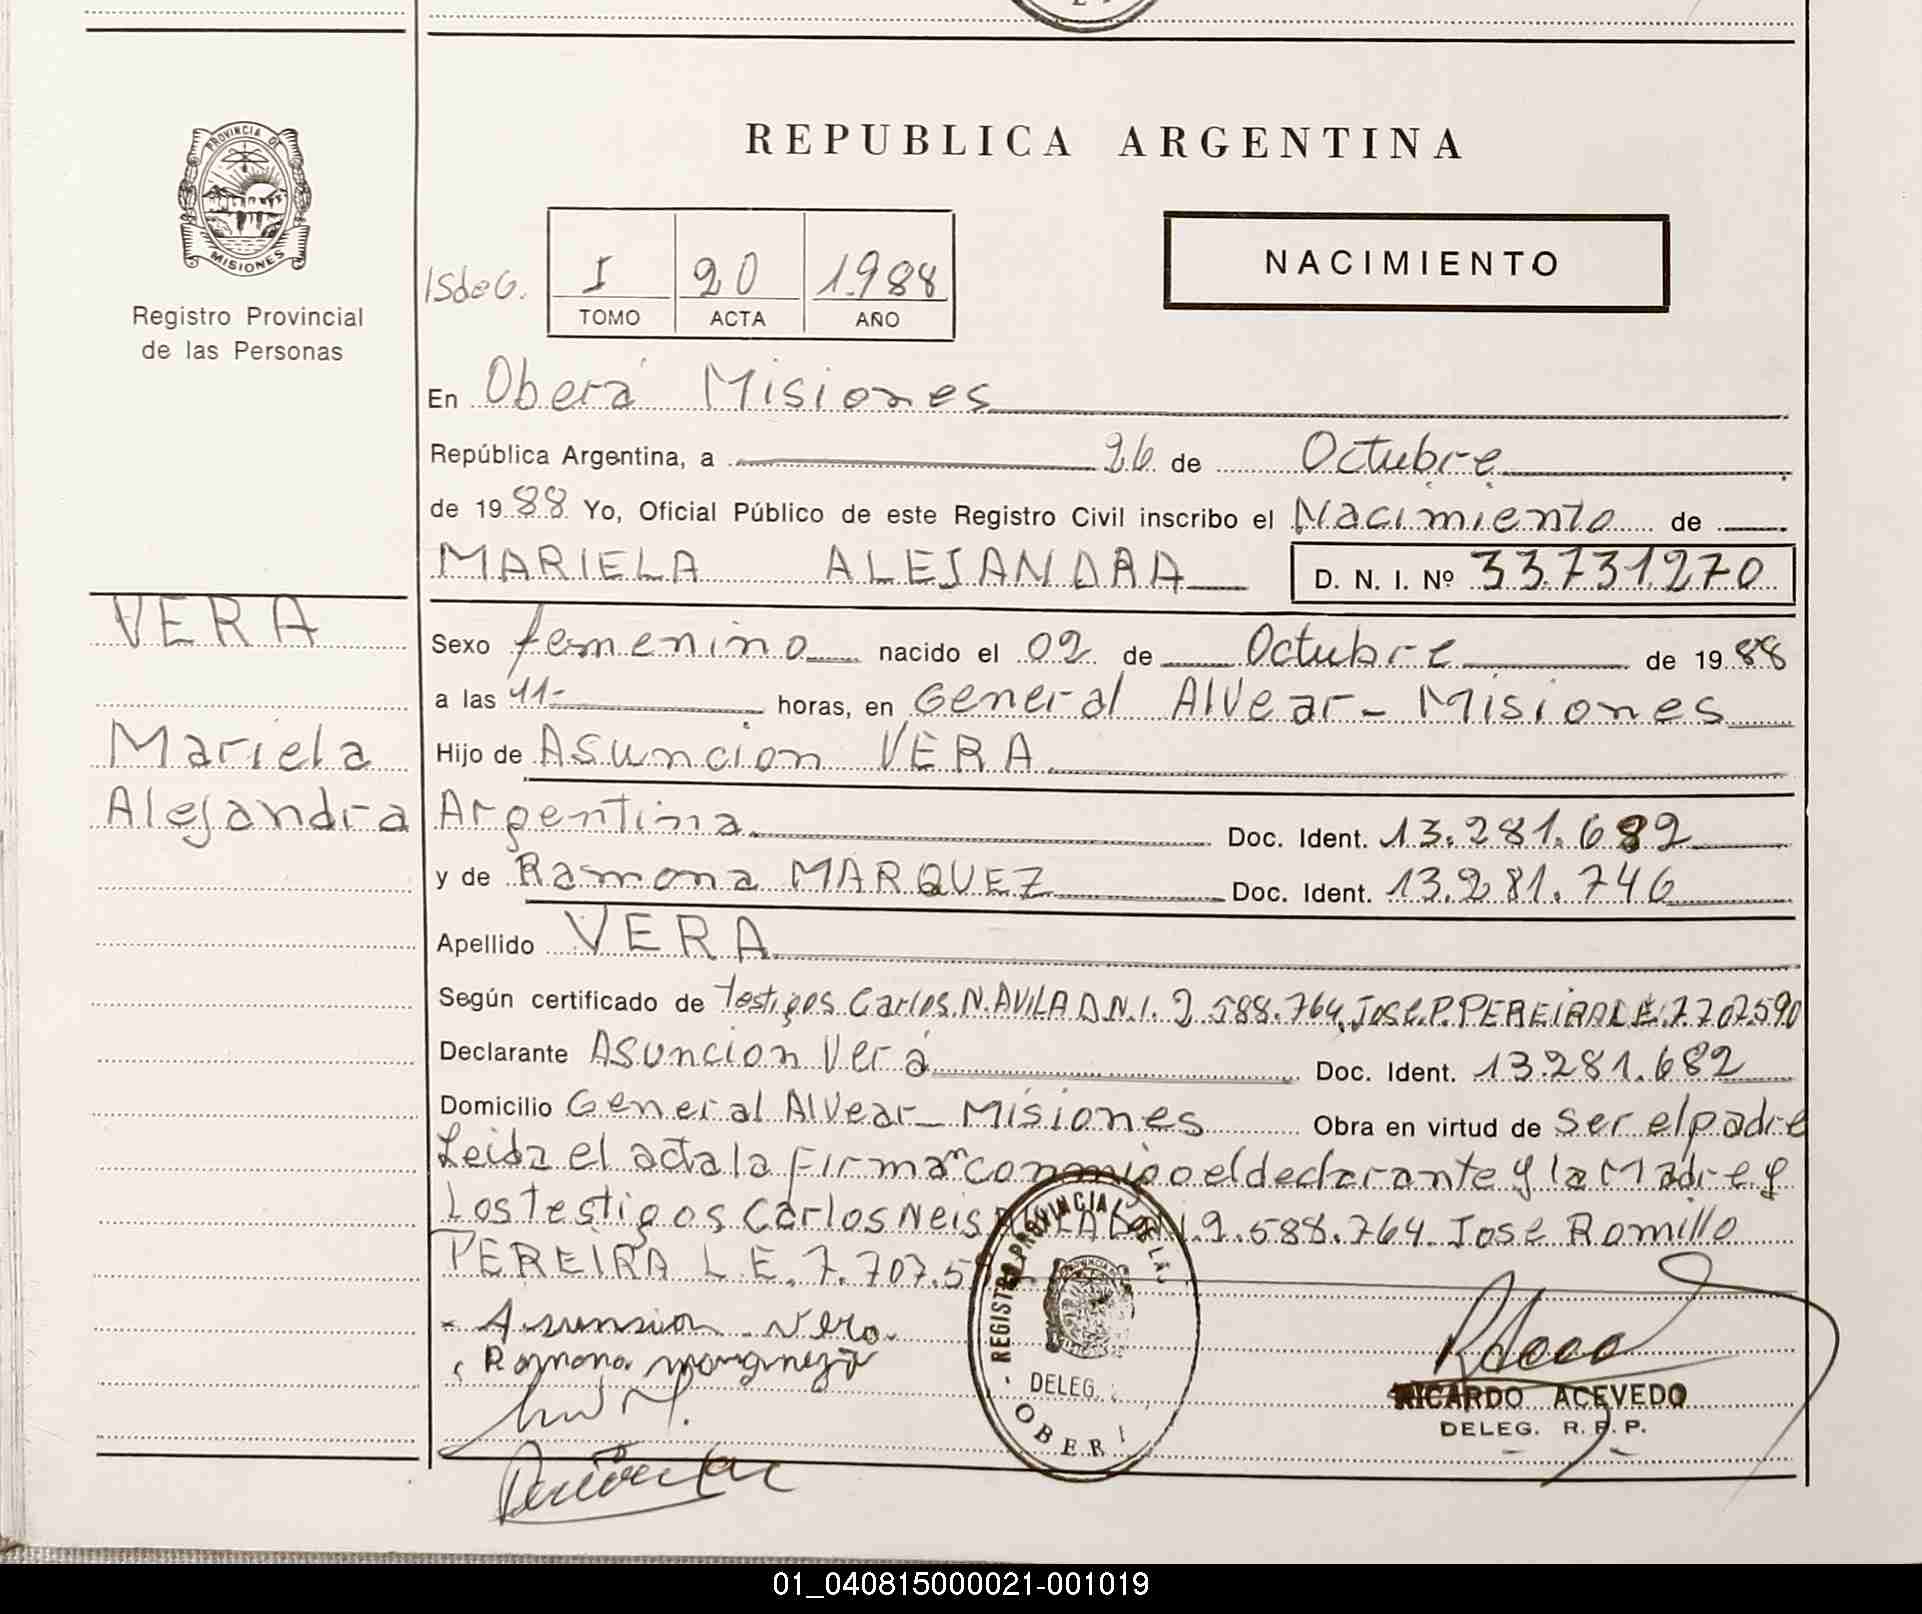 PROVINCIA DE
MISIONES
Registro Provincial
de las Personas
VERA
Mariela
Alejandra
REPUBLICA ARGENTINA
ISdeG.
I 20 1.988
TOMO ACTA AÑO
NACIMIENTO
En Oberá Misiones
República Argentina, a 26 de Octubre
de 1988 Yo, Oficial Público de este Registro Civil inscribo el Nacimiento de
MARIELA ALEJANDRA D. N. I. Nº 33.731.270
Sexo femenino nacido el 02 de Octubre de 1988
a las 11- horas, en General Alvear - Misiones
Hijo de Asuncion VERA
Argentina Doc. Ident. 13.281.682
y de Ramona MARQUEZ Doc. Ident. 13.281.746
Apellido VERA
Según certificado de testigos Carlos.N.AVILA D.N.I. 2.588.764, Jose.P.PEREIRA L.E.7.707.590
Declarante Asuncion Verá Doc. Ident. 13.281.682
Domicilio General Alvear - Misiones Obra en virtud de ser el padre
Leida el acta la Firman conmigo el declarante y la Madre y
Los testigos Carlos Neis AVILA D.N.I.2.588.764. Jose Romillo
PEREIRA L.E. 7.707.5
Asunsion Vera
Ramona
REGISTRO PROVINCIAL DE LA
DELEG.
OBER
RICARDO ACEVEDO
DELEG. R. P. P.
01_040815000021-001019